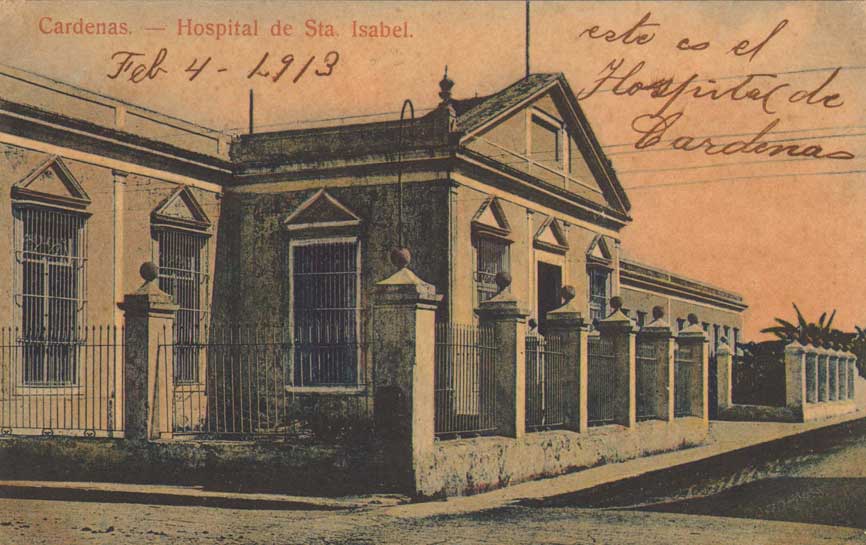 Cardenas. — Hospital de Sta. Isabel.
Feb 4 - 1913
este es el
Hospital de
Cardenas